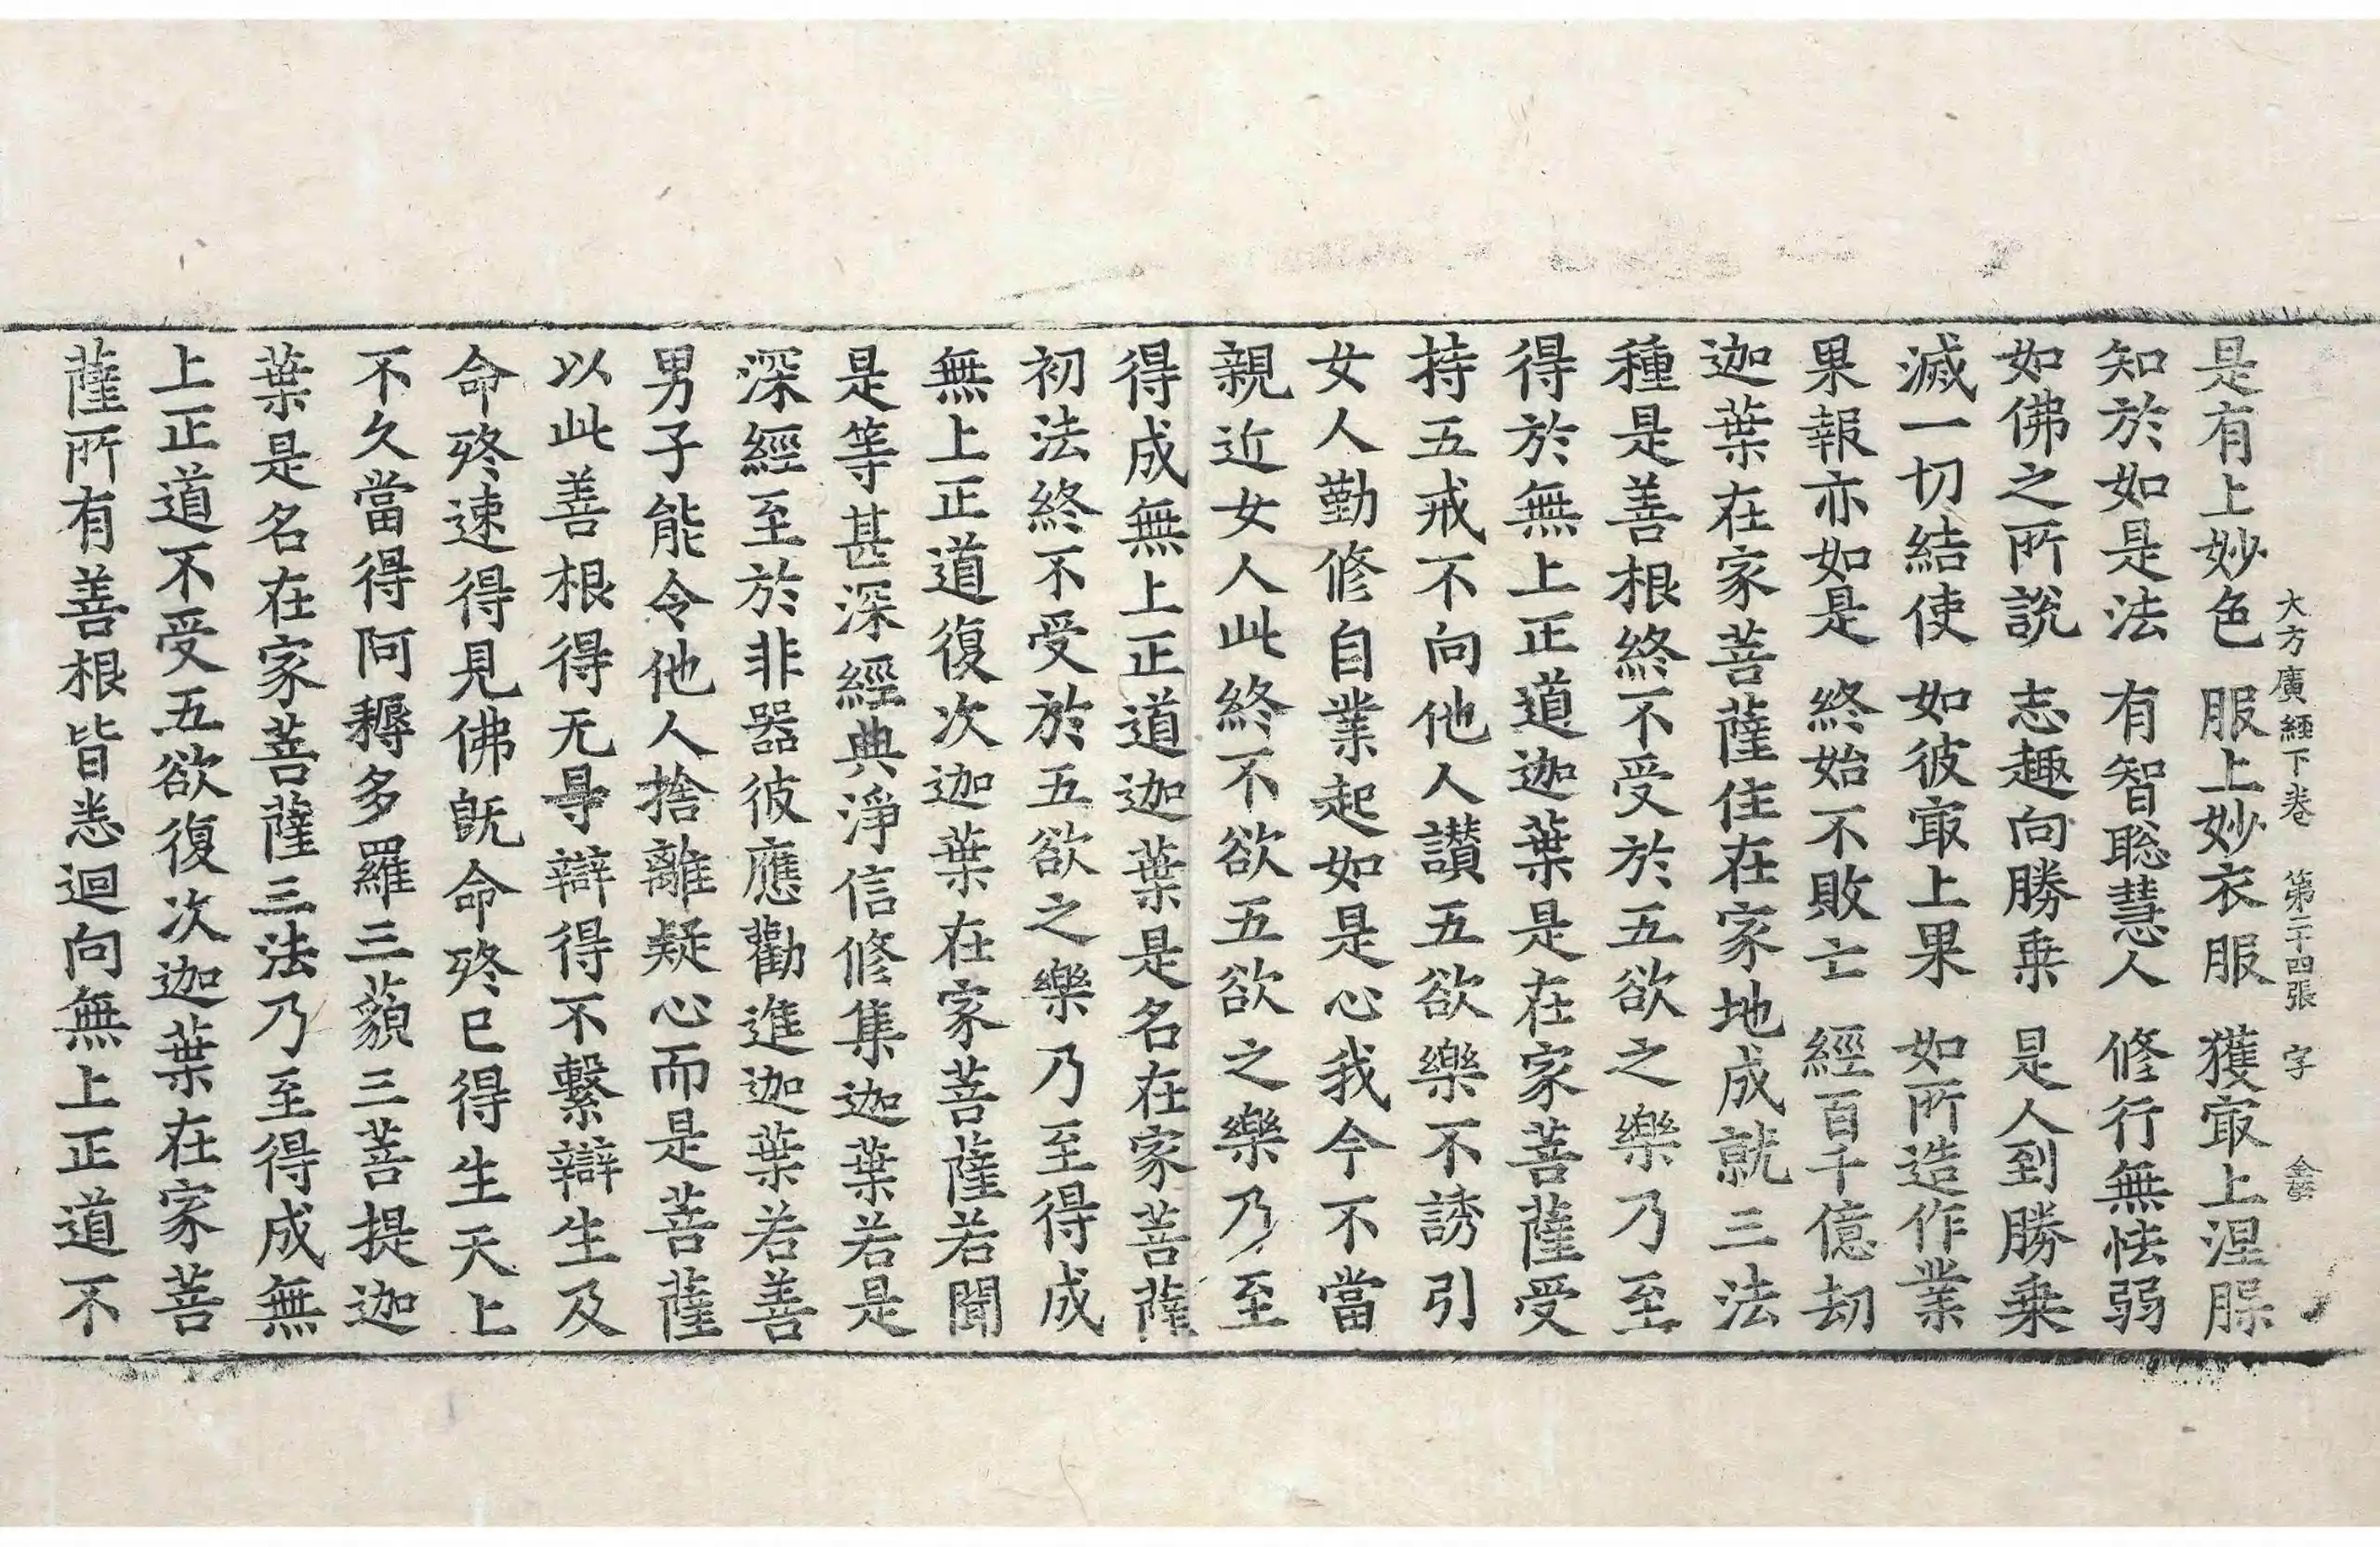 大方廣經下卷　第二十四張　字
是有上妙色　服上妙衣服　獲㝡上涅𦘺
知於如是法　有智聡慧人　修行無怯弱
如佛之所說　志趣向勝乗　是人到勝乗
滅一切結使　如彼㝡上果　如所造作業
果報亦如是　終始不敗亡　經百千億劫
迦葉在家菩薩住在家地成就三法
種是善根終不受於五欲之樂乃至
得於無上正道迦葉是在家菩薩受
持五戒不向他人讃五欲樂不誘引
女人勤修自業起如是心我今不當
親近女人此終不欲五欲之樂乃至
得成無上正道迦葉是名在家菩薩
初法終不受於五欲之樂乃至得成
無上正道復次迦葉在家菩薩若聞
是等甚深經典淨信修集迦葉若是
深經至於非器彼應勸進迦葉若善
男子能令他人捨離疑心而是菩薩
以此善根得无㝵辯得不繫辯生及
命終速得見佛旣命終已得生天上
不久當得阿耨多羅三藐三菩提迦
葉是名在家菩薩三法乃至得成無
上正道不受五欲復次迦葉在家菩
薩所有善根皆悉迴向無上正道不